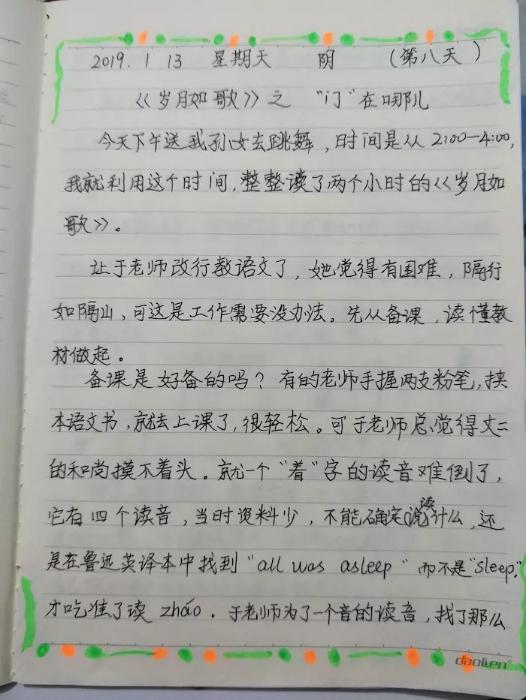 2019. 1 13 星期天 阴 (第八天)
《岁月如歌》之 "门"在哪儿
今天下午送我孙女去跳舞，时间是从2:00—4:00,
我就利用这个时间，整整读了两个小时的《岁月如
歌》。
让于老师改行教语文了，她觉得有困难，隔行
如隔山，可这是工作需要没办法。先从备课，读懂教
材做起。
备课是好备的吗？有的老师手握两支粉笔，挟
本语文书，就去上课了，很轻松。可于老师总觉得丈二
的和尚摸不着头。就一个"着"字的读音难倒了，
它有四个读音，当时资料少，不能确定说读什么，还
是在鲁迅英译本中找到"all was asleep"而不是"sleep",
才吃准了读zháo．于老师为了一个音的读音，找了那么
daolien